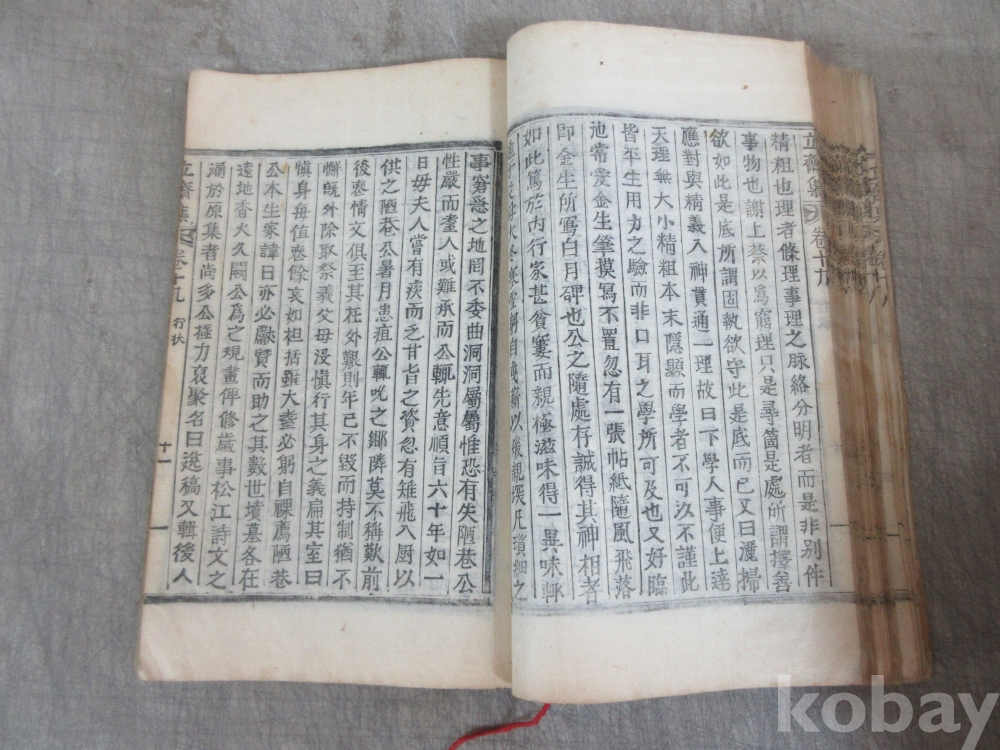 立齋集 卷十九
精粗也理者條理事理之脉絡分明者而是非別件
事物也謝上蔡以爲窮理只是尋箇是處所謂擇善
欲如此是底所謂固執欲守此是底而已又曰灑掃
應對與精義入神貫通一理故曰下學人事便上達
天理無大小精粗本末隱顯而學者不可以不謹此
皆平生用力之驗而非口耳之學所可及也又好臨
池常愛金生筆摸寫不置忽有一張帖紙隨風飛落
卽金生所寫白月碑也公之隨處存誠得其神相者
如此篤於內行家甚貧窶而親極滋味得一異味輒
事窘急之地罔不委曲洞洞屬屬惟恐有失陋巷公
性嚴而耋人或難承而公輒先意順旨六十年如一
日毋夫人嘗有疾而乏甘旨之資忽有雉飛入厨以
供之陋巷公暑月患疽公輒吮之鄉隣莫不稱歎前
後喪情文俱至其在外艱則年已不毁而持制猶不
懈旣外除取祭義父母沒愼行其身之義扁其室曰
愼身每値喪餘哀如袒括雖大耋必躬自祼薦陋巷
公本生家諱日亦必獻贊而助之其數世墳墓各在
遠地香火久闕公爲之規畫俾修歲事松江詩文之
漏於原集者尙多公極力裒聚名曰逸稿又輯後人
立齋集 卷十九 行狀
十一